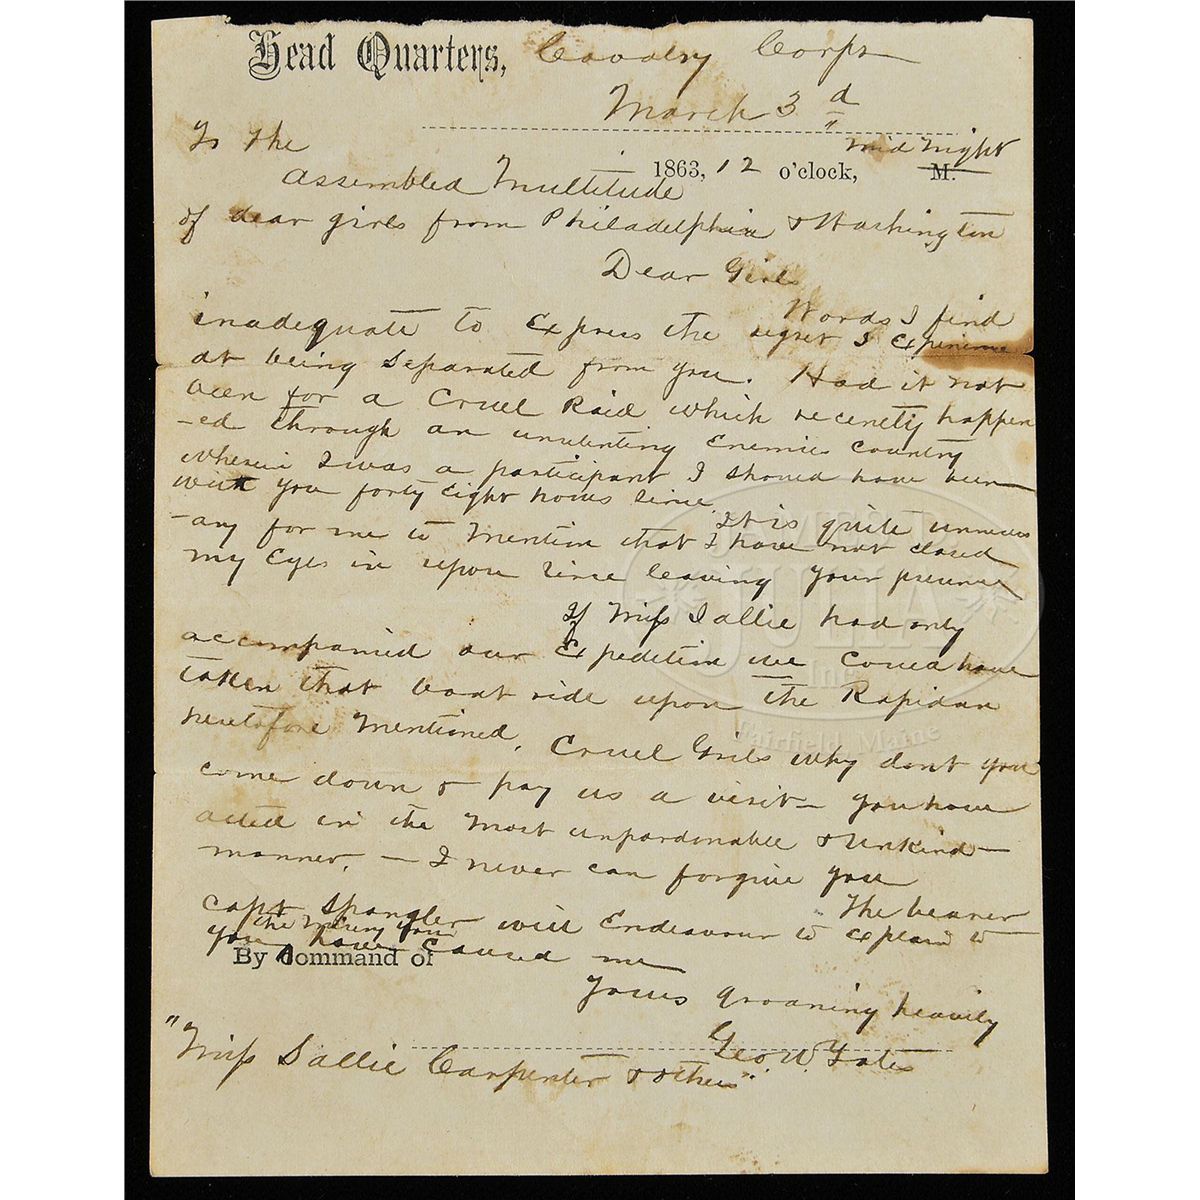 Head Quarters, Cavalry Corps
March 3d
To the
1863, 12 o'clock, mid night M.
assembled Multitude
of dear girls from Philadelphia & Washington
Dear Girls
Words I find
inadequate to Express the regret I Experience
at being Separated from you. Had it not
been for a Cruel Raid which recently happen
-ed through an unrelenting Enemies Country
wherein I was a participant I should have been
with you forty Eight hours since. It is quite unneces
-ary for me to Mention that I have not closed
my Eyes in repose since leaving your presence
If Miss Sallie had only
accompanied our Expedition we could have
taken that boat ride upon the Rapidan
heretofore Mentioned. Cruel Girls why dont you
come down & pay us a visit - you have
acted in the most unpardonable & unkind
manner. - I never can forgive you
The bearer
Capt Spangler will Endeavour to explain to
you the misery you have Caused me
By Command of
Yours groaning heavily
Geo. W. Yates
"Miss Sallie Carpenter & others"
JAMES D.
JULIA
Inc.
Fairfield, Maine